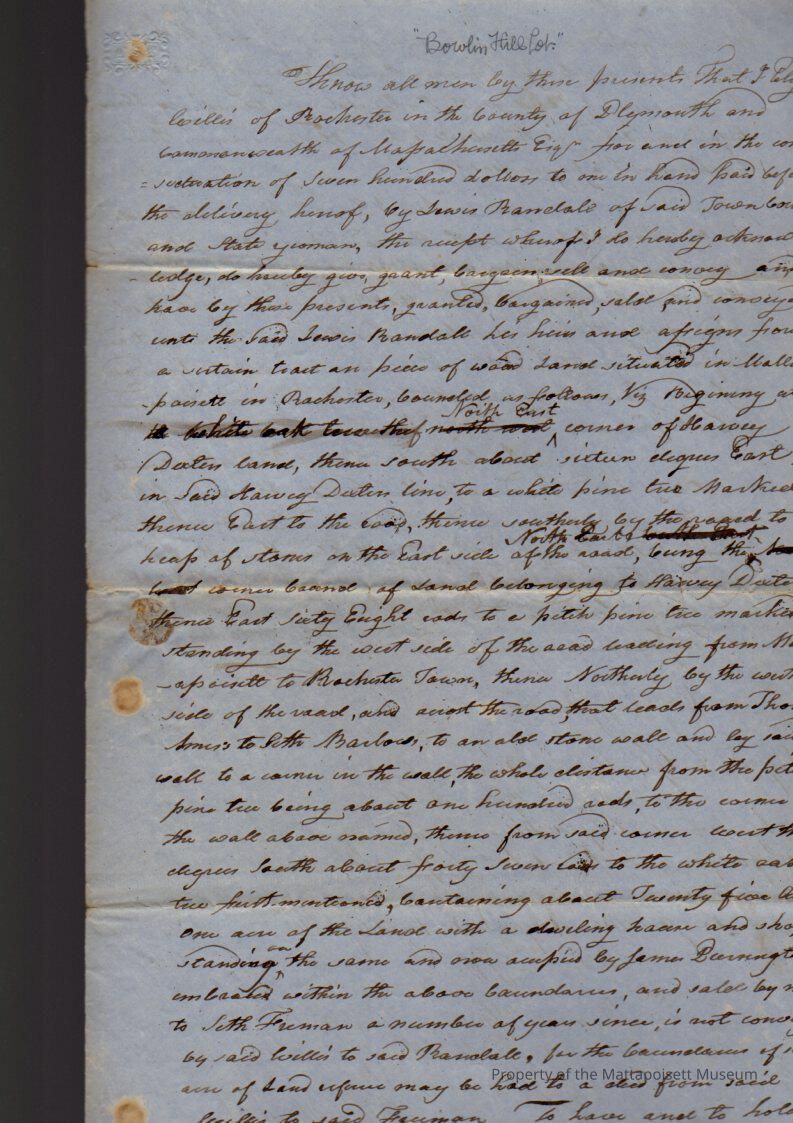 "Bowlin Hill Lot."
Know all men by these presents That I
Willis of Rochester in the County of Plymouth and
Commonwealth of Massachusetts Esqr for and in the con
=sideration of seven hundred dollars to me in hand paid befo
the delivery hereof, by Lewis Randall of said Town
and State yeoman, the receipt whereof I do hereby acknow
- ledge, do hereby give, grant, bargain, sell and convey an
have by these presents, granted, bargained, sold, and convey
unto the said Lewis Randall his heirs and assigns
a certain tract an piece of wood Land situated in Matta
-poisett in Rochester, bounded as follows, Viz Begining a
North East
a white oak tree the north west corner of Harvey
Dexters land, thence south about sixteen degrees East
in said Harvey Dexters line, to a white pine tree Marked
thence East to the road, thence southerly by the roaad to
North East
heap of stones on the East side of the road, being the
west corner bound of Land belonging to Harvey Dexte
thence East sixty Eight rods to a pitch pine tree marke
standing by the west side of the road leading from Ma
-apoisett to Rochester Town, thence Northerly by the west
side of the road, and acrost the road, that leads from Tho
Ames to Seth Barlows, to an old stone wall and by sai
wall to a corner in the wall, the whole distance from the pit
pine tree being about one hundred rods, to the corner
the wall above named, thence from said corner west th
degrees South about forty seven rods to the white oak
tree first mentioned, Containing about Twenty five
One acre of the Land with a dweling house and sho
on
standing the same and now occupied by James
embraced within the above boundaries, and sold by
to Seth Freeman a number of years since, is not conv
by said Willis to said Randall, for the boundaries of
acre of Land refference may be had to a deed from said
Willis to said Freeman To have and to hold
Property of the Mattapoisett Museum